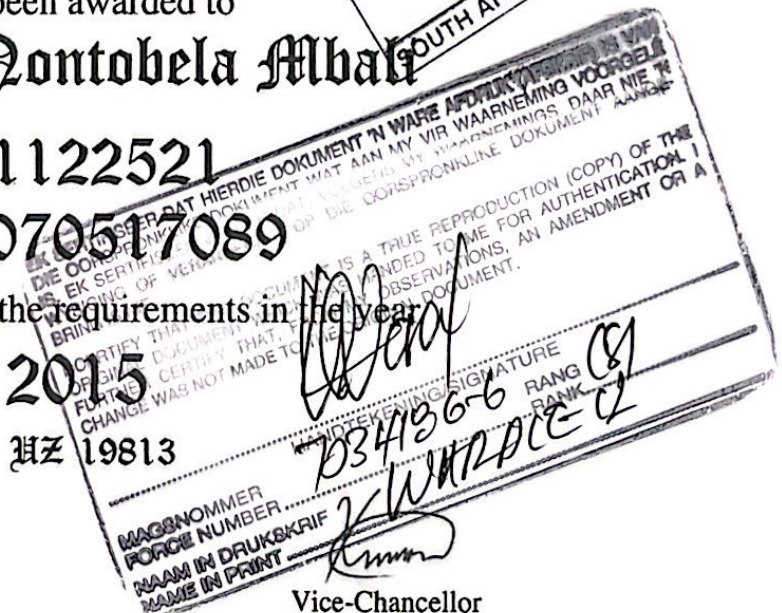 been awarded to
Qontobela Mbali
1122521
070517089
the requirements in the year
2015
UZ 19813
Vice-Chancellor
SOUTH AF
EK SERTIFISEER DAT HIERDIE DOKUMENT 'N WARE AFDRUK (AFSKRIF) IS VAN
DIE OORSPRONKLIKE DOKUMENT WAT AAN MY VIR WAARNEMING VOORGELÊ
IS. EK SERTIFISEER VERDER DAT, VOLGENS MY WAARNEMINGS, DAAR NIE 'N
WYSIGING OF VERANDERING OP DIE OORSPRONKLIKE DOKUMENT AANGE
BRING
I CERTIFY THAT THIS DOCUMENT IS A TRUE REPRODUCTION (COPY) OF THE
ORIGINAL DOCUMENT WHICH WAS HANDED TO ME FOR AUTHENTICATION. I
FURTHER CERTIFY THAT, FROM MY OBSERVATIONS, AN AMENDMENT OR A
CHANGE WAS NOT MADE TO THE ORIGINAL DOCUMENT.
HANDTEKENING/SIGNATURE
MAGSNOMMER
FORCE NUMBER 7034196-6 RANG
RANK
NAAM IN DRUKSKRIF
NAME IN PRINT